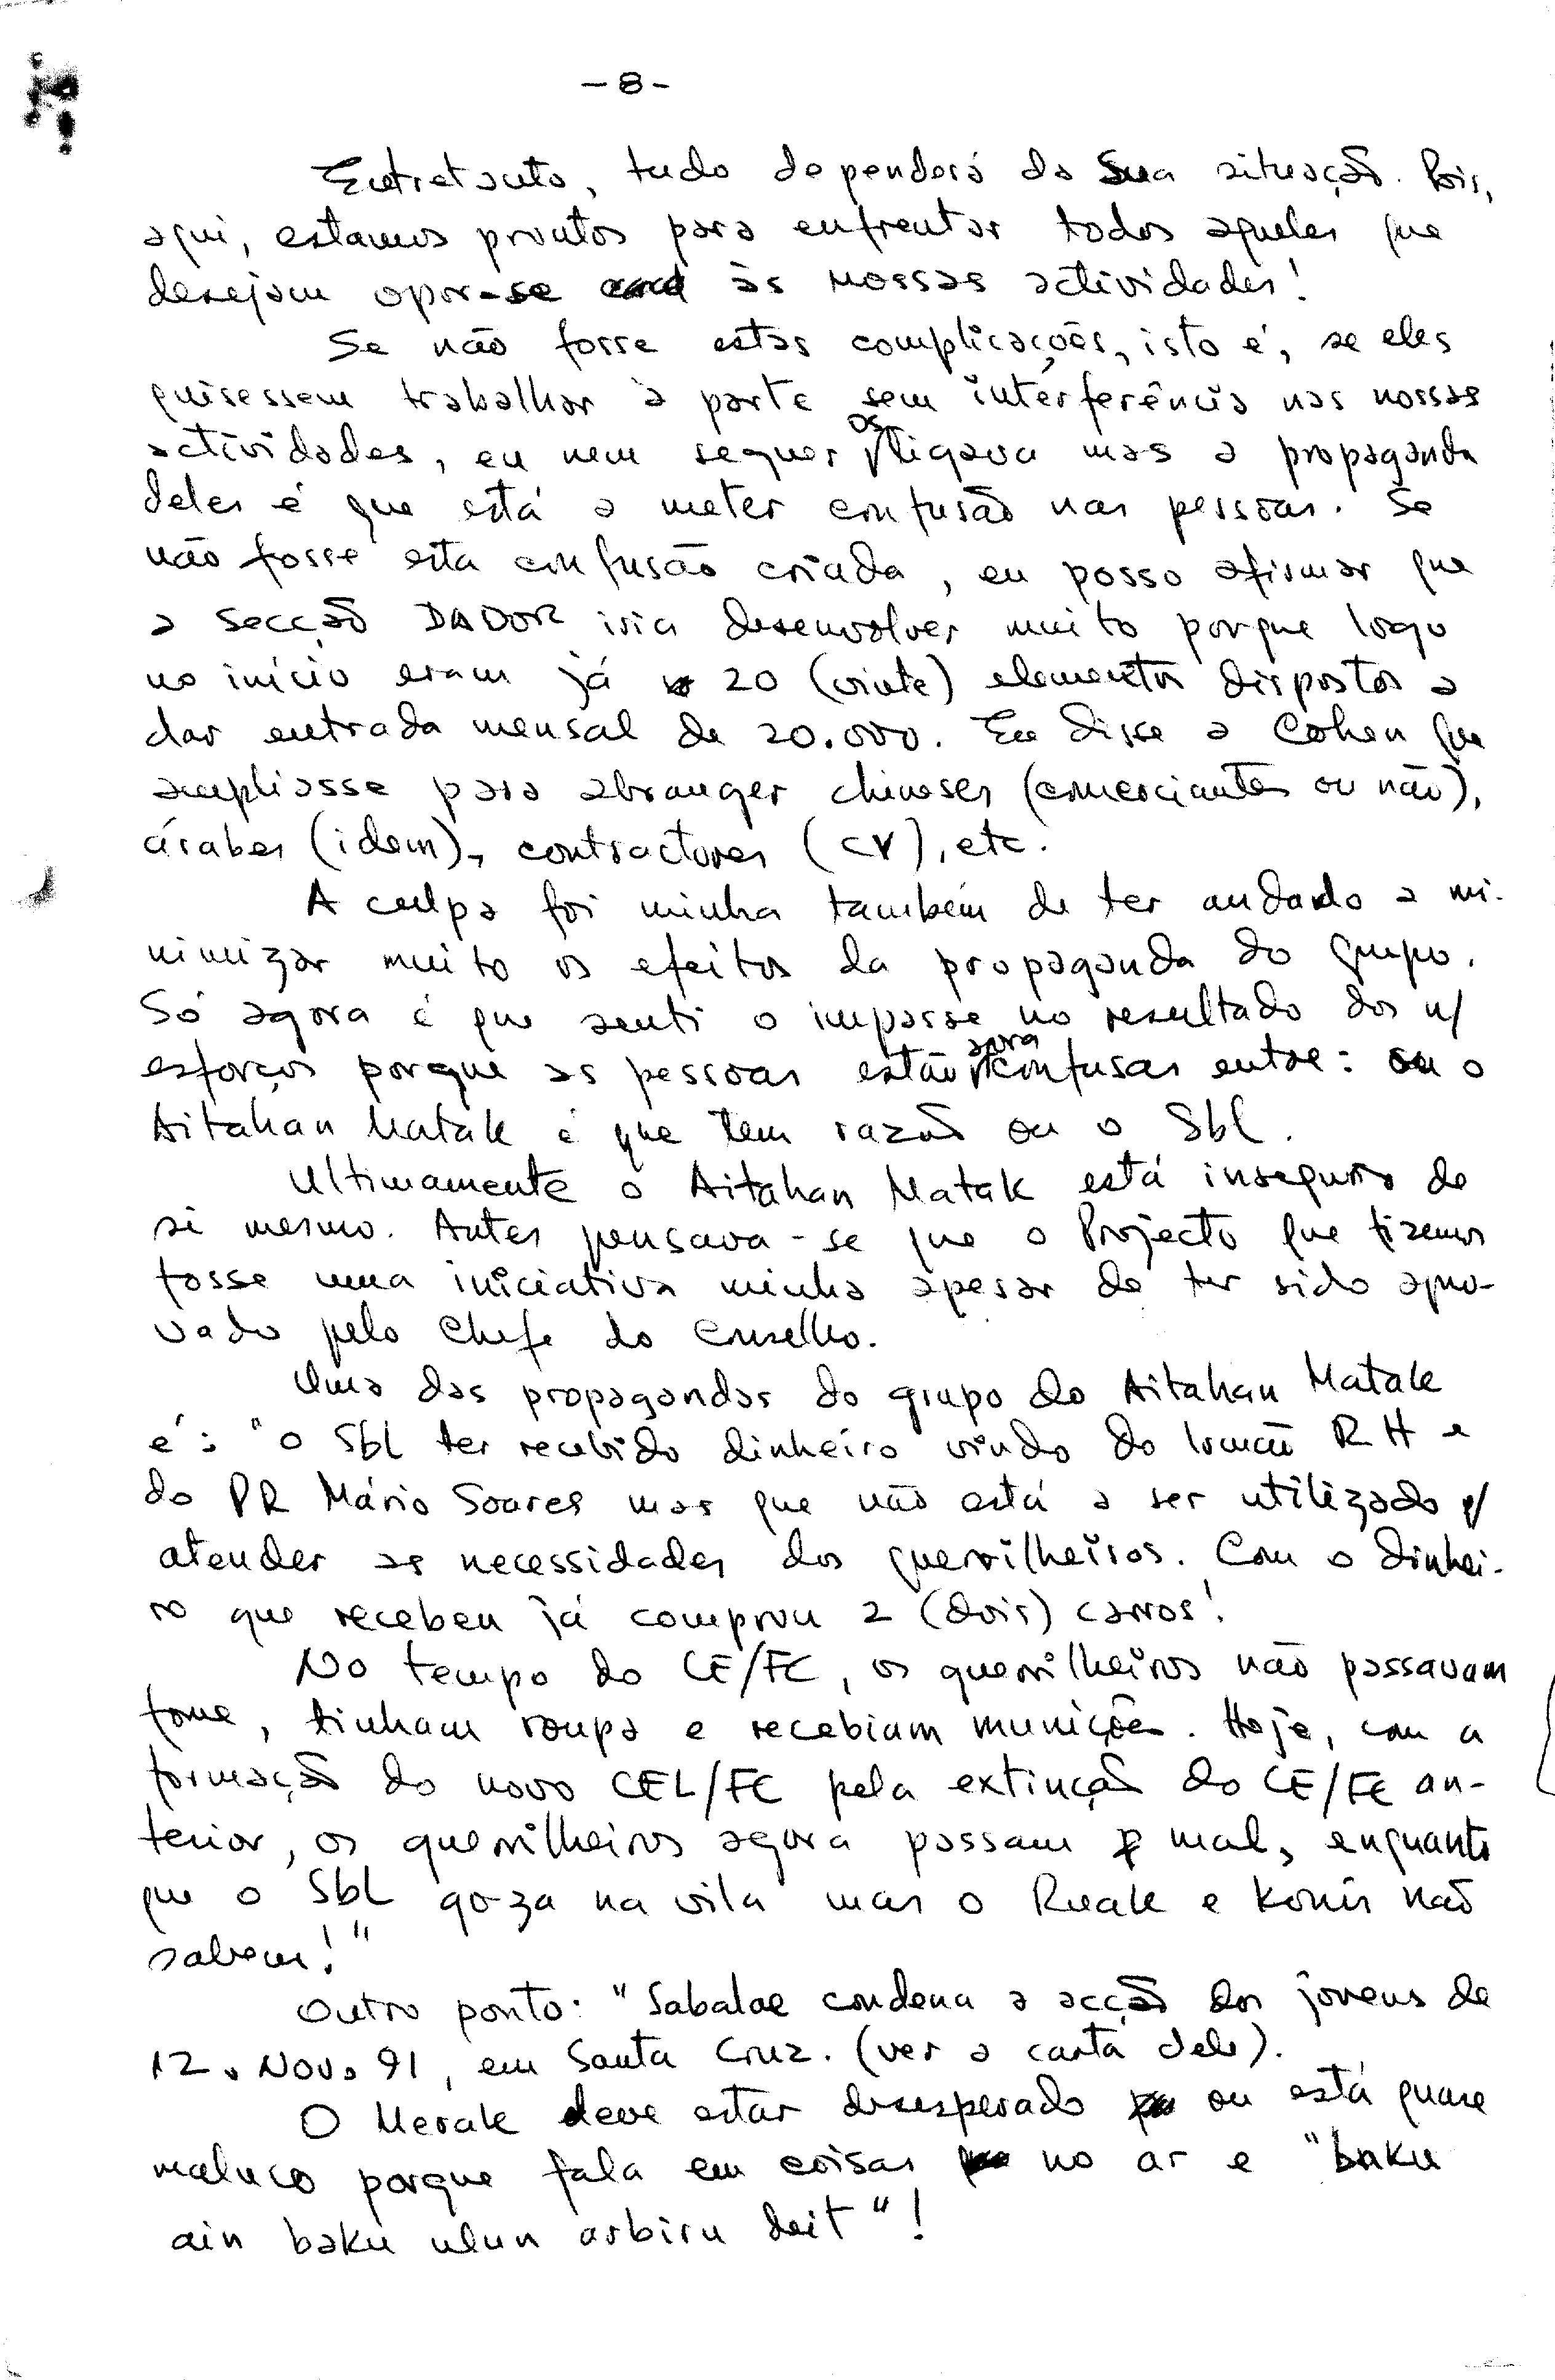 - 8 -
Entretanto, tudo dependerá da Sua situação. Pois,
aqui, estamos prontos para enfrentar todos aqueles que
desejam opor-se às nossas actividades!
Se não fosse estas complicações, isto é, se eles
quisessem trabalhar à parte sem interferência nas nossas
actividades, eu nem sequer os ligava mas a propaganda
deles é que está a meter confusão nas pessoas. Se
não fosse esta confusão criada, eu posso afirmar que
a secção DADOR iria desenvolver muito porque logo
no início eram já 20 (vinte) elementos dispostos a
dar entrada mensal de 20.000. Eu disse a Cohen que
ampliasse para abranger chineses (comerciantes ou não),
árabes (idem), contractores (CV), etc.
A culpa foi minha também de ter andado a mi-
nimizar muito os efeitos da propaganda do grupo.
Só agora é que senti o impasse no resultado dos n/
esforços porque as pessoas estão confusas entre: ou o
Aitahan Matak é que tem razão ou o Sbl.
Ultimamente o Aitahan Matak está inseguro de
si mesmo. Antes pensava-se que o Projecto que fizemos
fosse uma iniciativa minha apesar de ter sido apro-
vado pelo Chefe do Conselho.
Uma das propagandas do grupo do Aitahan Matak
é: "o Sbl ter recebido dinheiro vindo do Irmão RH e
do PR Mário Soares mas que não está a ser utilizado p/
atender as necessidades dos guerrilheiros. Com o dinhei-
ro que recebeu já comprou 2 (dois) carros!
No tempo do CE/FC, os guerrilheiros não passavam
fome, tinham roupa e recebiam munições. Hoje, com a
formação do novo CEL/FC pela extinção do CE/FC an-
terior, os guerrilheiros agora passam mal, enquanto
que o Sbl goza na vila mas o Ruak e Konis não
sabem!"
Outro ponto: "Sabalae condena a acção dos jovens de
12. Nov. 91, em Santa Cruz. (ver a carta dele).
O Merak deve estar desesperado ou está quase
maluco porque fala em coisas no ar e "baku
ain baku ulun arbiru deit"!